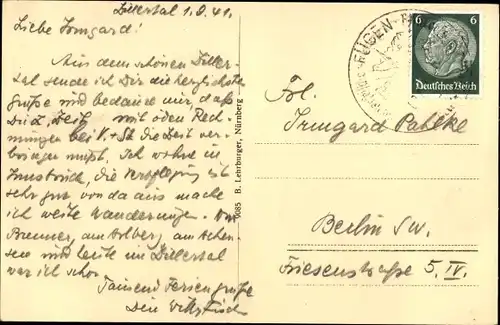 Zillertal 1.9.41.
Liebe Irmgard!
Aus dem schönen Ziller-
tal sende ich Dir die herzlichsten
Grüße und bedaure nur, daß
Du Zeit mit öden Rech-
nungen bei V. + St. die Zeit ver-
bringen mußt. Ich wohne in
Innsbruck, die Verpflegung ist
sehr gut, von da aus mache
ich weite Wanderungen. Am
Brenner, am Arlberg, am Achen-
see und heute im Zillertal
war ich schon.
Tausend Feriengrüße
Dein
9685 B. Lehrburger, Nürnberg
RÜGEN
6 6
Deutsches Reich
Frl.
Irmgard Pahlke
Berlin SW.
Friesenstraße 5, IV.